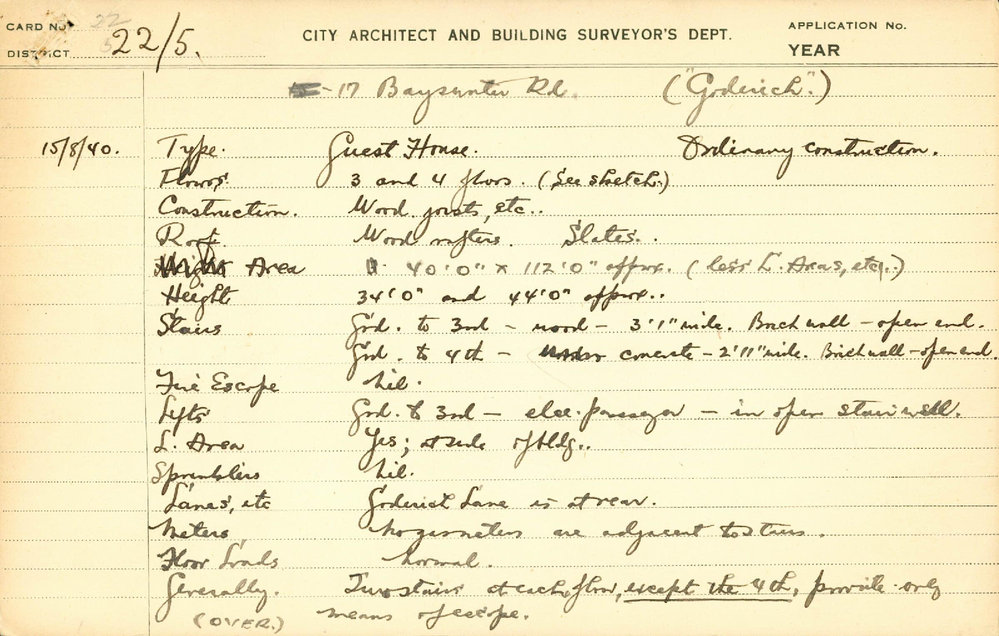 CARD No. 22
DISTRICT 22/5.
CITY ARCHITECT AND BUILDING SURVEYOR'S DEPT.
APPLICATION No.
YEAR
-17 Bayswater Rd. ("Goderich".)
15/8/40. Type. Guest House. Ordinary construction.
Floors. 3 and 4 floors. (See sketch.)
Construction. Wood joists, etc..
Roof. Wood rafters. Slates..
Area 40'0" x 112'0" approx. (less L. Areas, etc.)
Height 34'0" and 44'0" approx..
Stairs Grd. to 3rd - wood - 3'1" wide. Brick wall - open end.
Grd. to 4th - concrete - 2'11" wide. Brick wall - open end.
Fire Escape Nil.
Lifts Grd. to 3rd - elec. passenger - in open stair well.
L. Area Yes; at side of bldg..
Sprinklers Nil.
Lanes, etc Goderich Lane is at rear.
Meters No gasmeters are adjacent to stairs.
Floor Loads Normal.
Generally. Two stairs at each floor, except the 4th, provide only
(OVER.) means of escape.